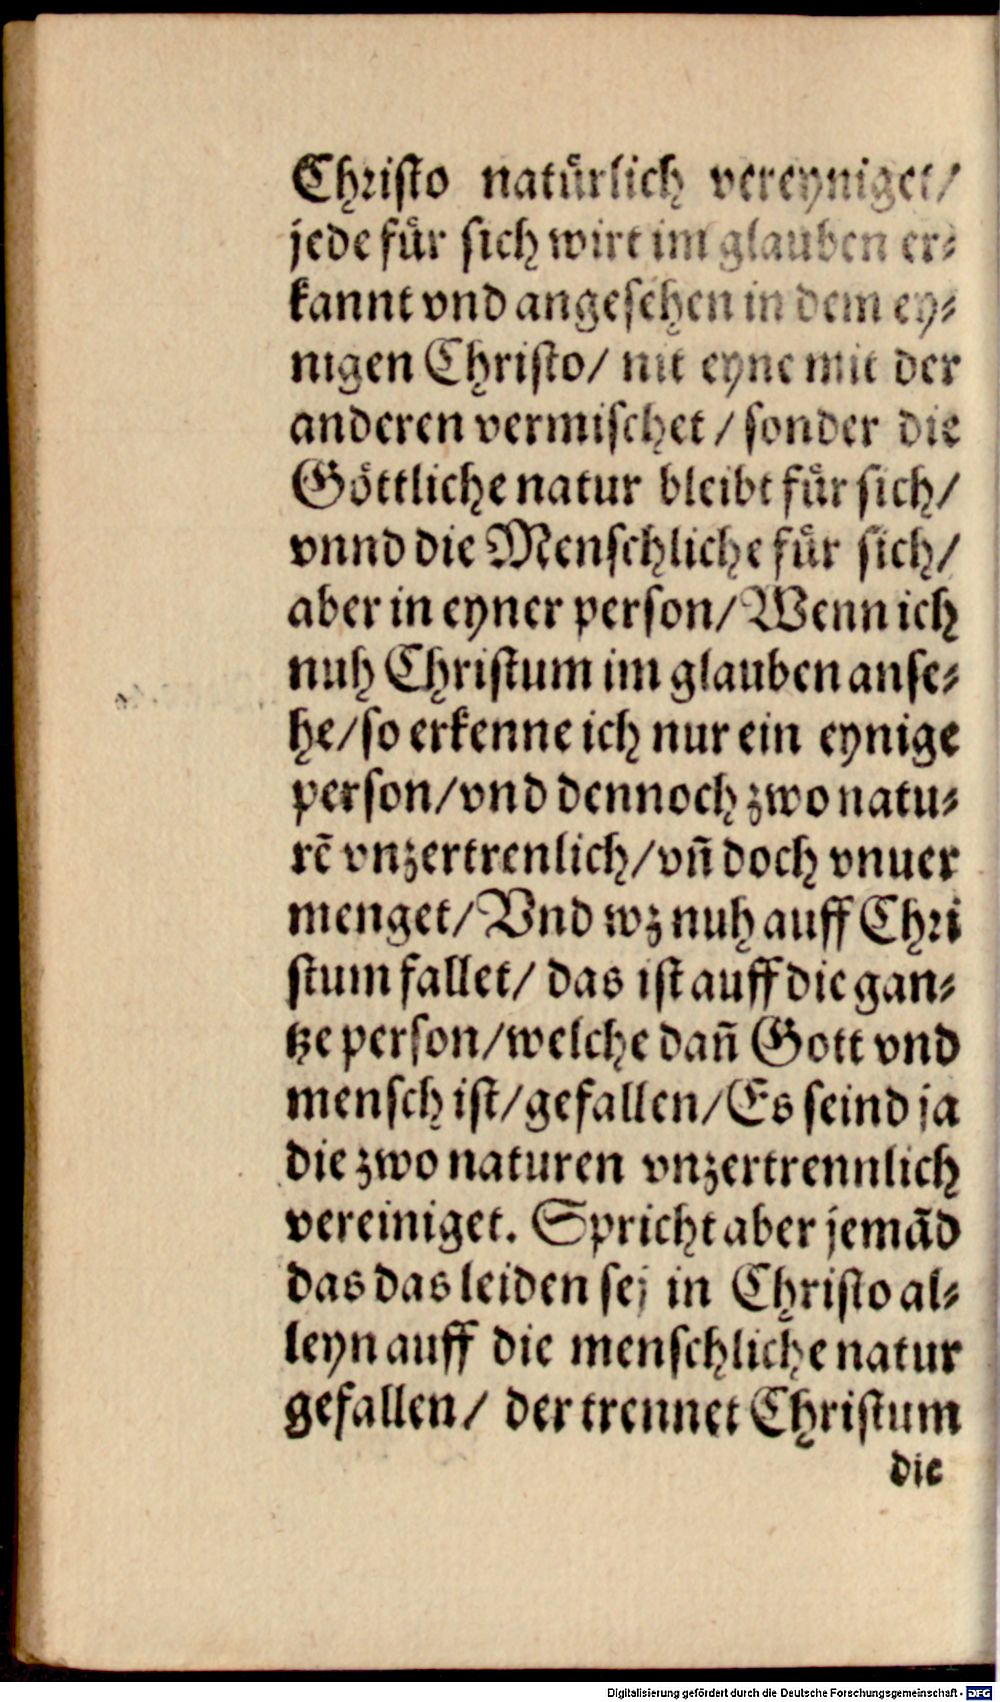 Chriſto natuͤrlich vereyniget/
jede fuͤr ſich wirt im glauben er⸗
kannt vnd angeſehen in dem ey⸗
nigen Chriſto/ nit eyne mit der
anderen vermiſchet / ſonder die
Goͤttliche natur bleibt fuͤr ſich/
vnnd die Menſchliche fuͤr ſich/
aber in eyner perſon/ Wenn ich
nuh Chriſtum im glauben anſe⸗
he/ſo erkenne ich nur ein eynige
perſon/vnd dennoch zwo natu⸗
rē vnzertrenlich/vn̄ doch vnuer
menget/ Vnd wz nuh auff Chri
ſtum fallet/ das iſt auff die gan⸗
tze perſon/welche dan̄ Gott vnd
menſch iſt/gefallen/Es ſeind ja
die zwo naturen vnzertrennlich
vereiniget. Spricht aber jemãd
das das leiden ſej in Chriſto al⸗
leyn auff die menſchliche natur
gefallen/ der trennet Chriſtum
die
Digitalisierung gefördert durch die Deutsche Forschungsgemeinschaft - DFG